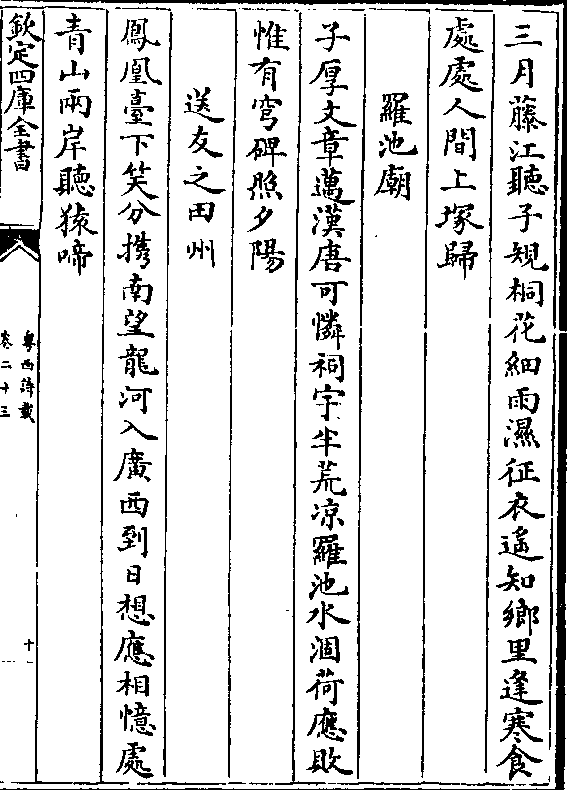 三月藤江聽子規桐花細雨濕征衣遙知鄉里逢寒食
處處人間上塚歸
羅池廟
子厚文章邁漢唐可憐祠宇半荒凉羅池水涸荷應敗
惟有穹碑照夕陽
送友之田州
鳳凰臺下笑分携南望龍河入廣西到日想應相憶處
青山兩岸聽猿啼
欽定四庫全書
粵西詩載
卷二十三
十